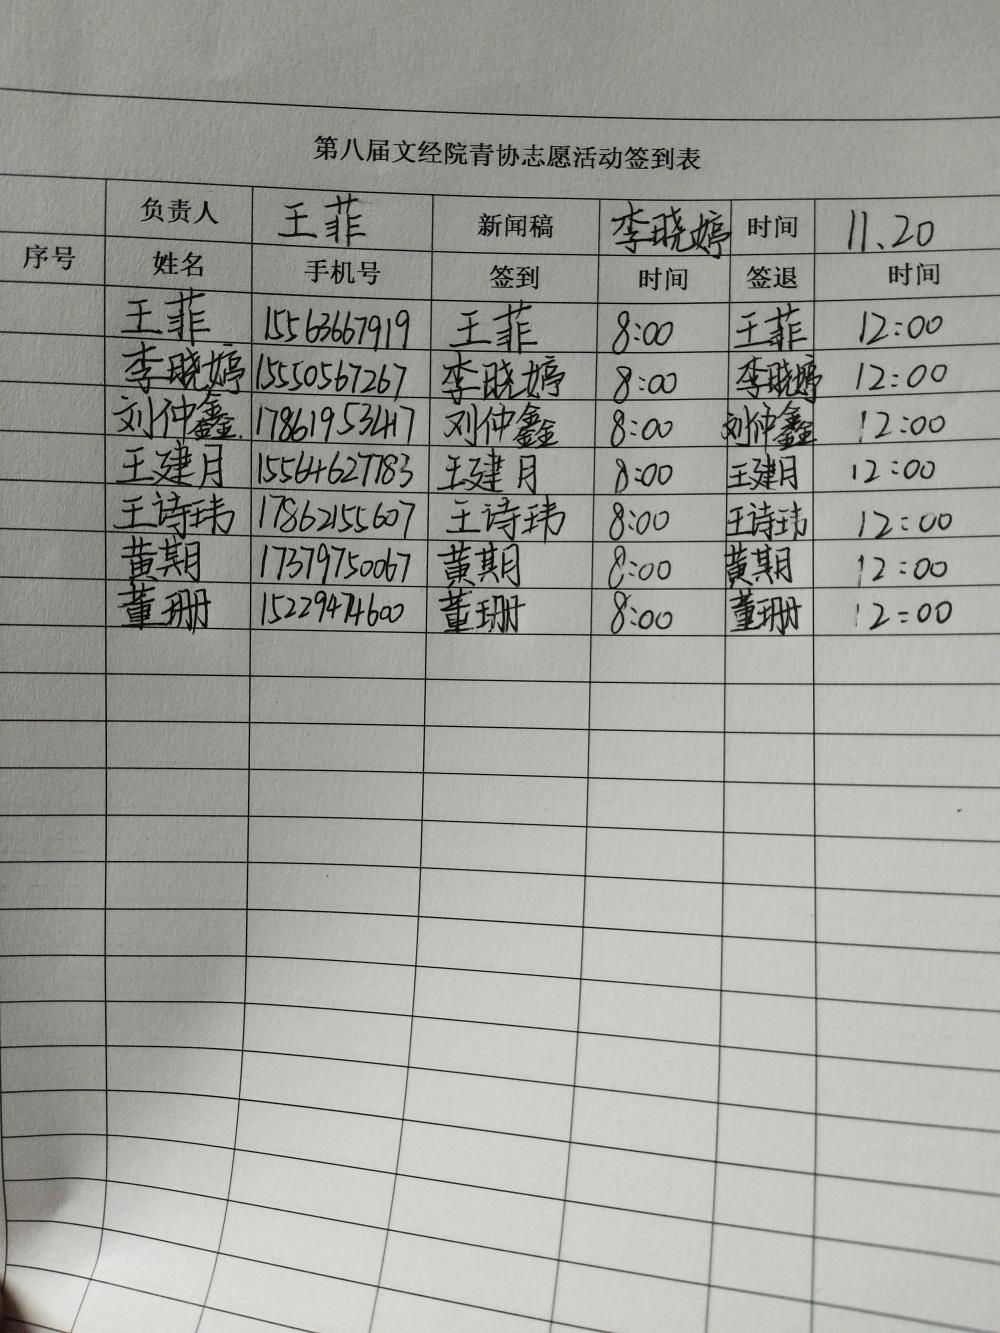 第八届文经院青协志愿活动签到表
负责人 王菲 新闻稿 李晓婷 时间 11.20
序号 姓名 手机号 签到 时间 签退 时间
王菲 15563667919 王菲 8:00 王菲 12:00
李晓婷 15550567267 李晓婷 8:00 李晓婷 12:00
刘仲鑫 17861953417 刘仲鑫 8:00 刘仲鑫 12:00
王建月 15564627783 王建月 8:00 王建月 12:00
王诗玮 17862155607 王诗玮 8:00 王诗玮 12:00
黄期 17379750067 黄期 8:00 黄期 12:00
董珊 15229474600 董珊 8:00 董珊 12:00